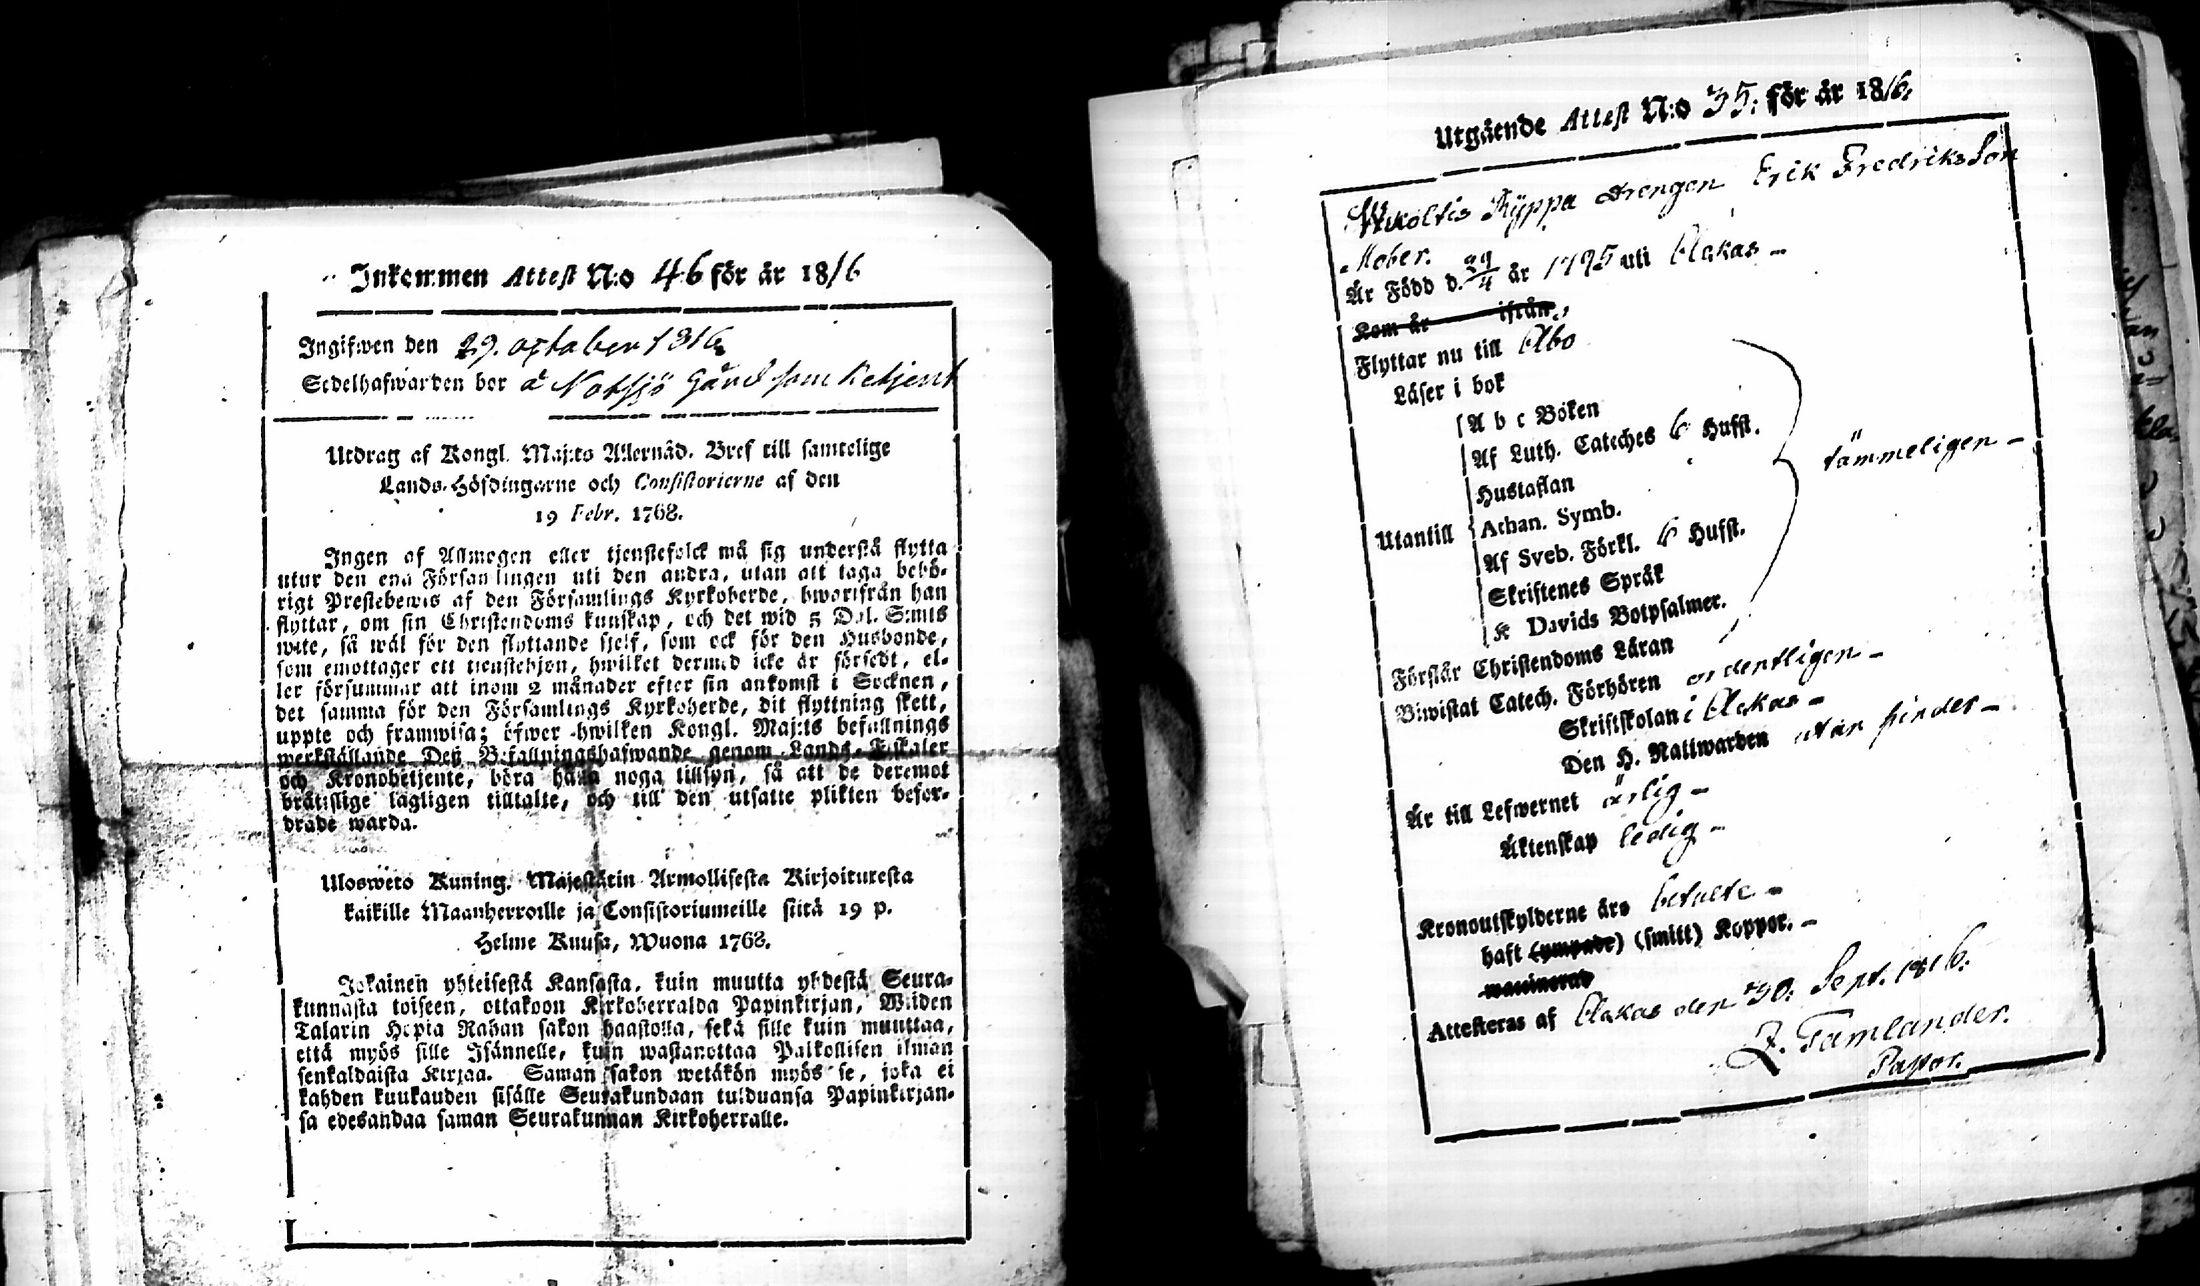 Inkommen Attest N:o 46 för år 1816
Ingifwen den 29. october 1816
Sedelhafwarden bor å Notsjö Gård som Betjent
Utdrag af Kongl. Maj:ts Allernåd. Bref till samtelige
Lands-Höfdingarne och Consistorierne af den
19 Febr. 1768.
Ingen af Allmogen eller tjenstefolck må sig understå flytta
utur den ena Församlingen uti den andra, utan att taga behö-
rigt Prestebewis af den Församlings Kyrkoherde, hwarifrån han
flyttar, om sin Christendoms kunskap, och det wid 5 Dal. S:mts
wite, så wäl för den flyttande sjelf, som ock för den Husbonde,
som emottager ett tienstehjon, hwilket dermed icke är försedt, el-
ler försummar att inom 2 månader efter sin ankomst i Socknen,
det samma för den Församlings Kyrkoherde, dit flyttning skett,
uppte och framwisa; öfwer hwilken Kongl. Maj:ts befallnings
werkställande Deß Befallningshafwande genom Lands-Fiskaler
och Kronobetjente, böra hafa noga tillsyn, så att de deremot
bråtislige lagligen tilltalte, och till den utsatte plikten befor-
drade warda.
Ulosweto Kuning. Majestätin Armollisesta Kirjoituresta
kaikille Maanherroille ja Consistoriumeille siitä 19 p.
Helme Kuusa, Wuona 1768.
Jokainen yhteisestä Kansasta, kuin muutta yhdestä Seura-
kunnasta toiseen, ottakoon Kirkoherralda Papinkirjan, Wiiden
Talarin Hopia Rahan sakon haastolla, sekä sille kuin muuttaa,
että myös sille Isännelle, kuin wastanottaa Palkollisen ilman
senkaldaista Kirjaa. Saman sakon wetäkön myös se, joka ei
kahden kuukauden sisälle Seurakundaan tulduansa Papinkirjan-
sa edesandaa saman Seurakunnan Kirkoherralle.
Utgående Attest N:o 35: för år 1816.
Ryppa Drengen Erik Fredriksson
Mober.
Är Född d. 29/4 år 1795 uti Ackas –
Kom år ifrån
Flyttar nu till Åbo
Läser i bok
A b c Boken
Af Luth. Cateches 6 Hufst.
Hustaflan
Utantill
Athan. Symb.
tämmeligen –
Af Sveb. Förkl. 6 Hufst.
Skriftenes Språk
K Davids Botpsalmer.
Förstår Christendoms Läran
Biwistat Catech. Förhören ordentligen –
Skriftskolan i Ackas –
Den H. Nattwarden utan hinder –
Är till Lefwernet ärlig –
Äktenskap ledig –
Kronoutskylderne äro betalte –
haft (ympade) (smitt) Koppor. –
waccinerad
Attesteras af Ackas den 30: Sept. 1816.
Z. Tamlander.
Pastor.